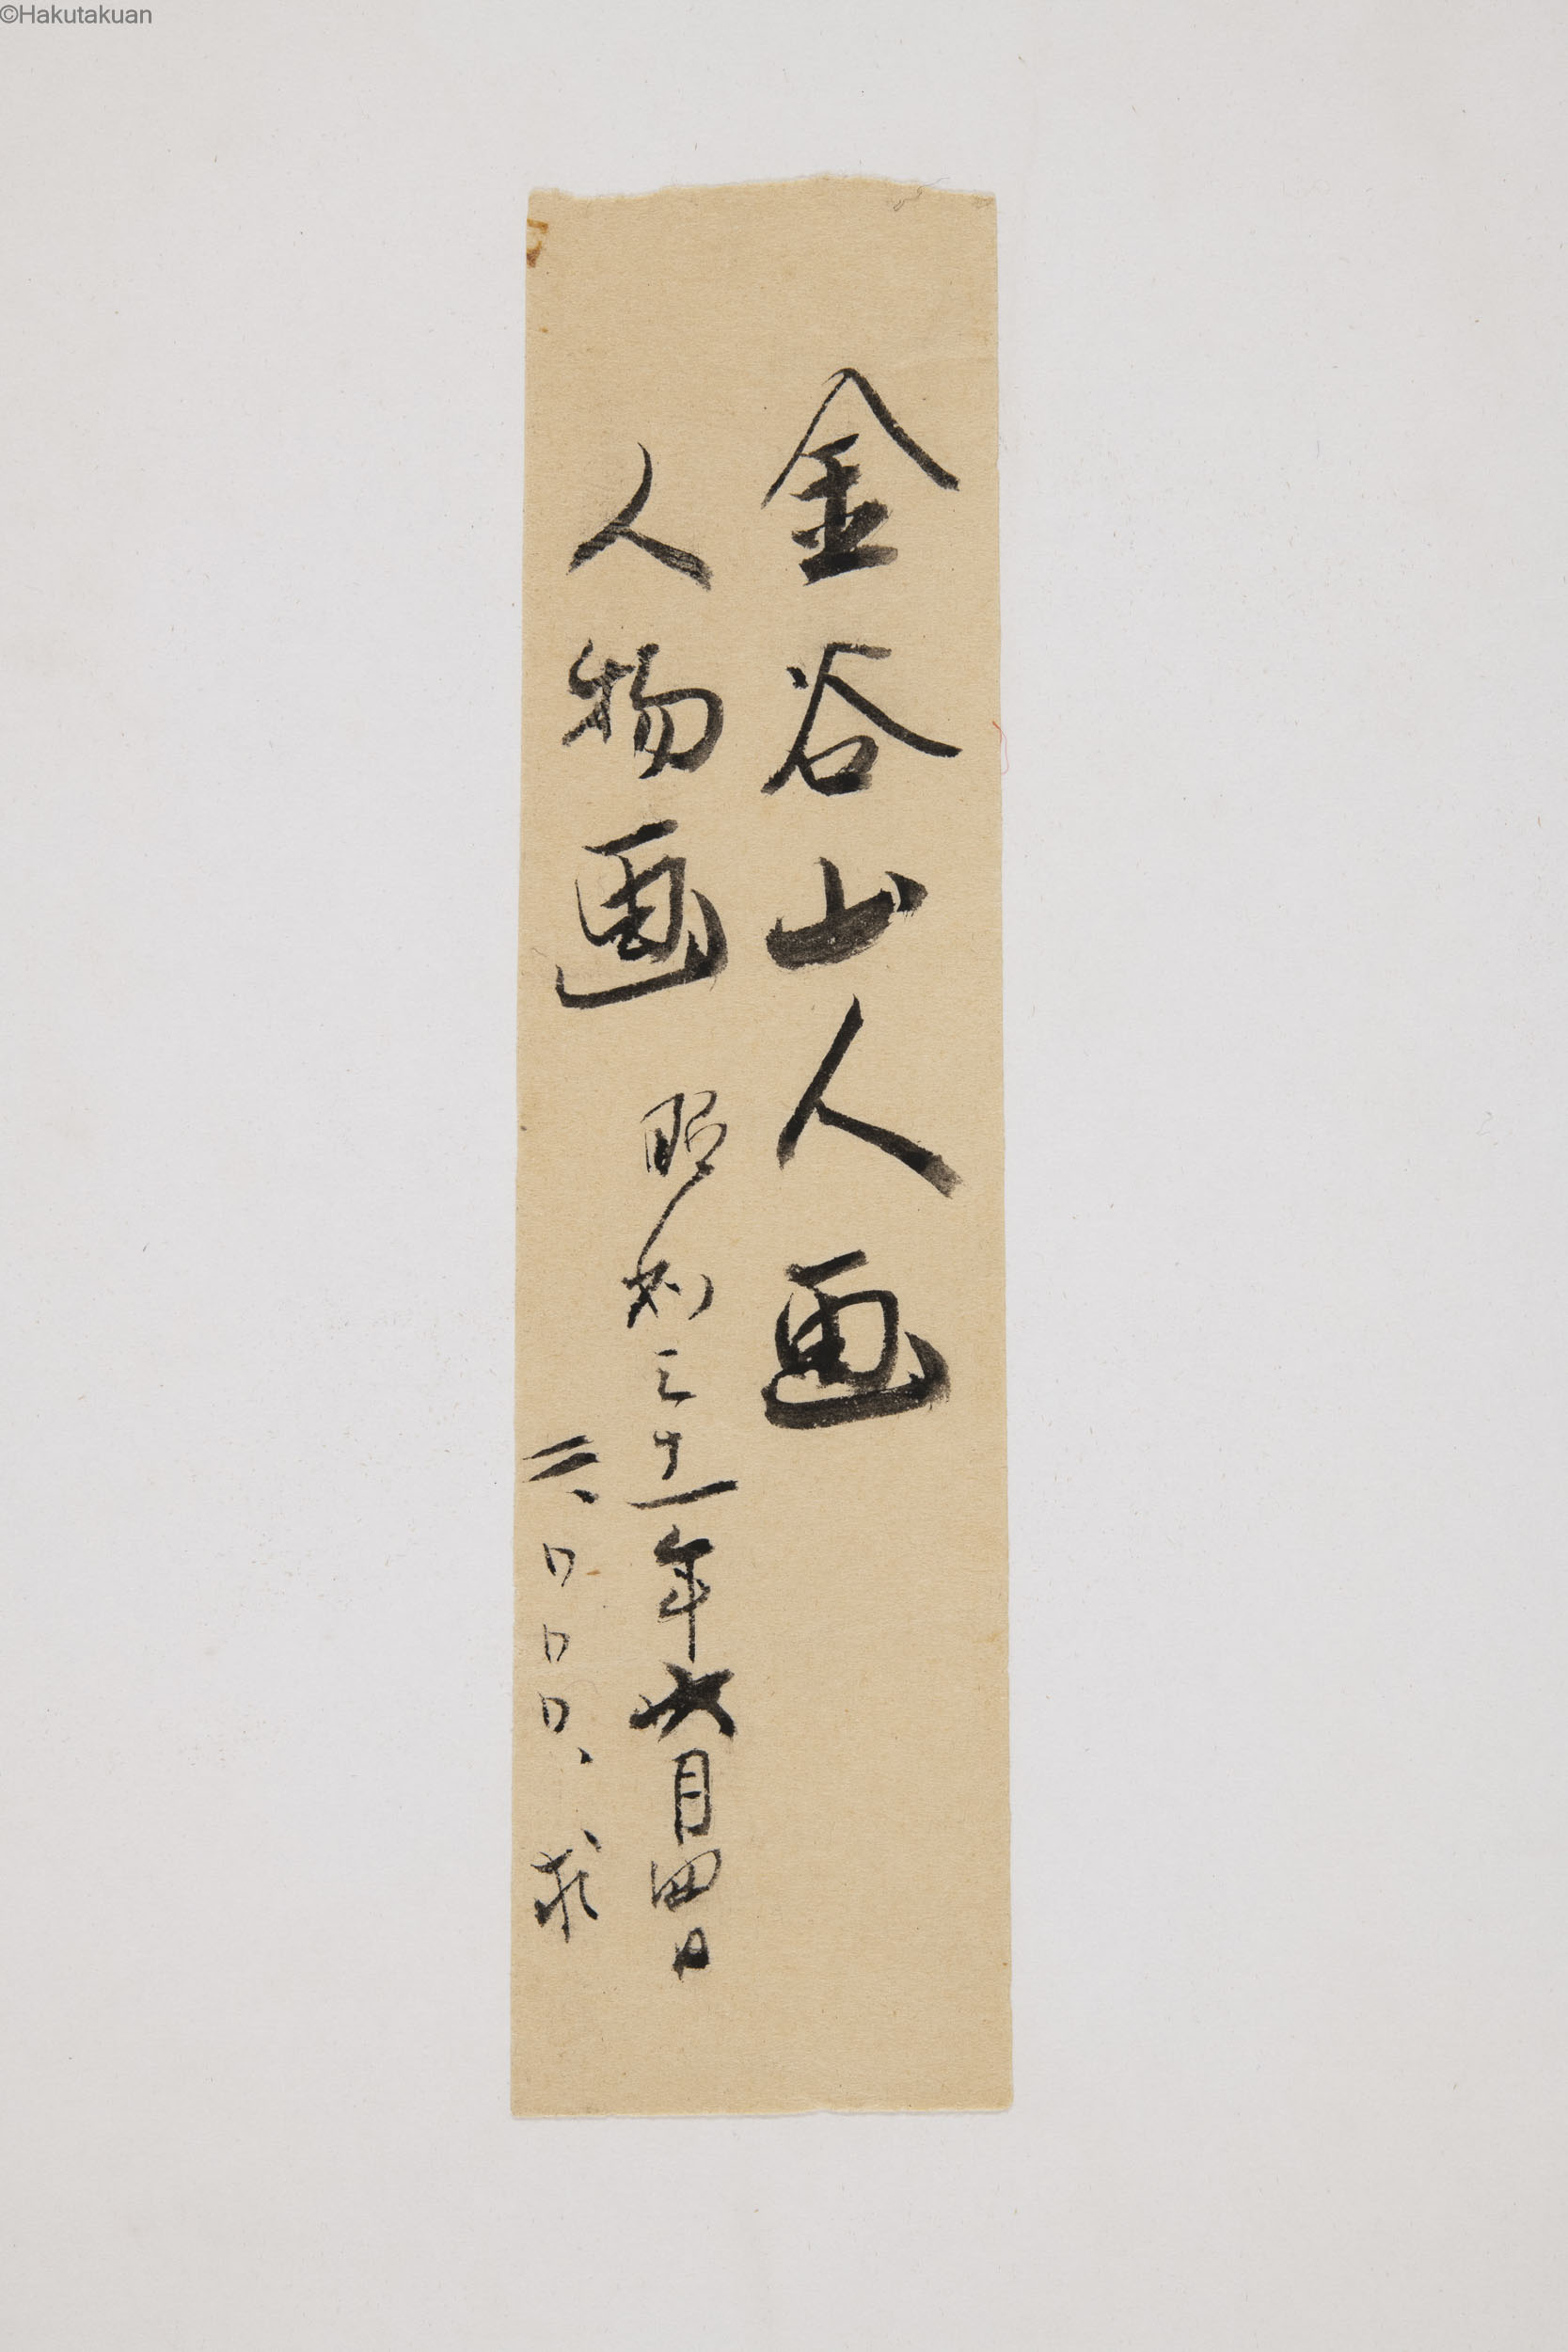 ©Hakutakuan
金谷山人画
人物画
昭和三十一年六月四日
二、〇〇〇、求